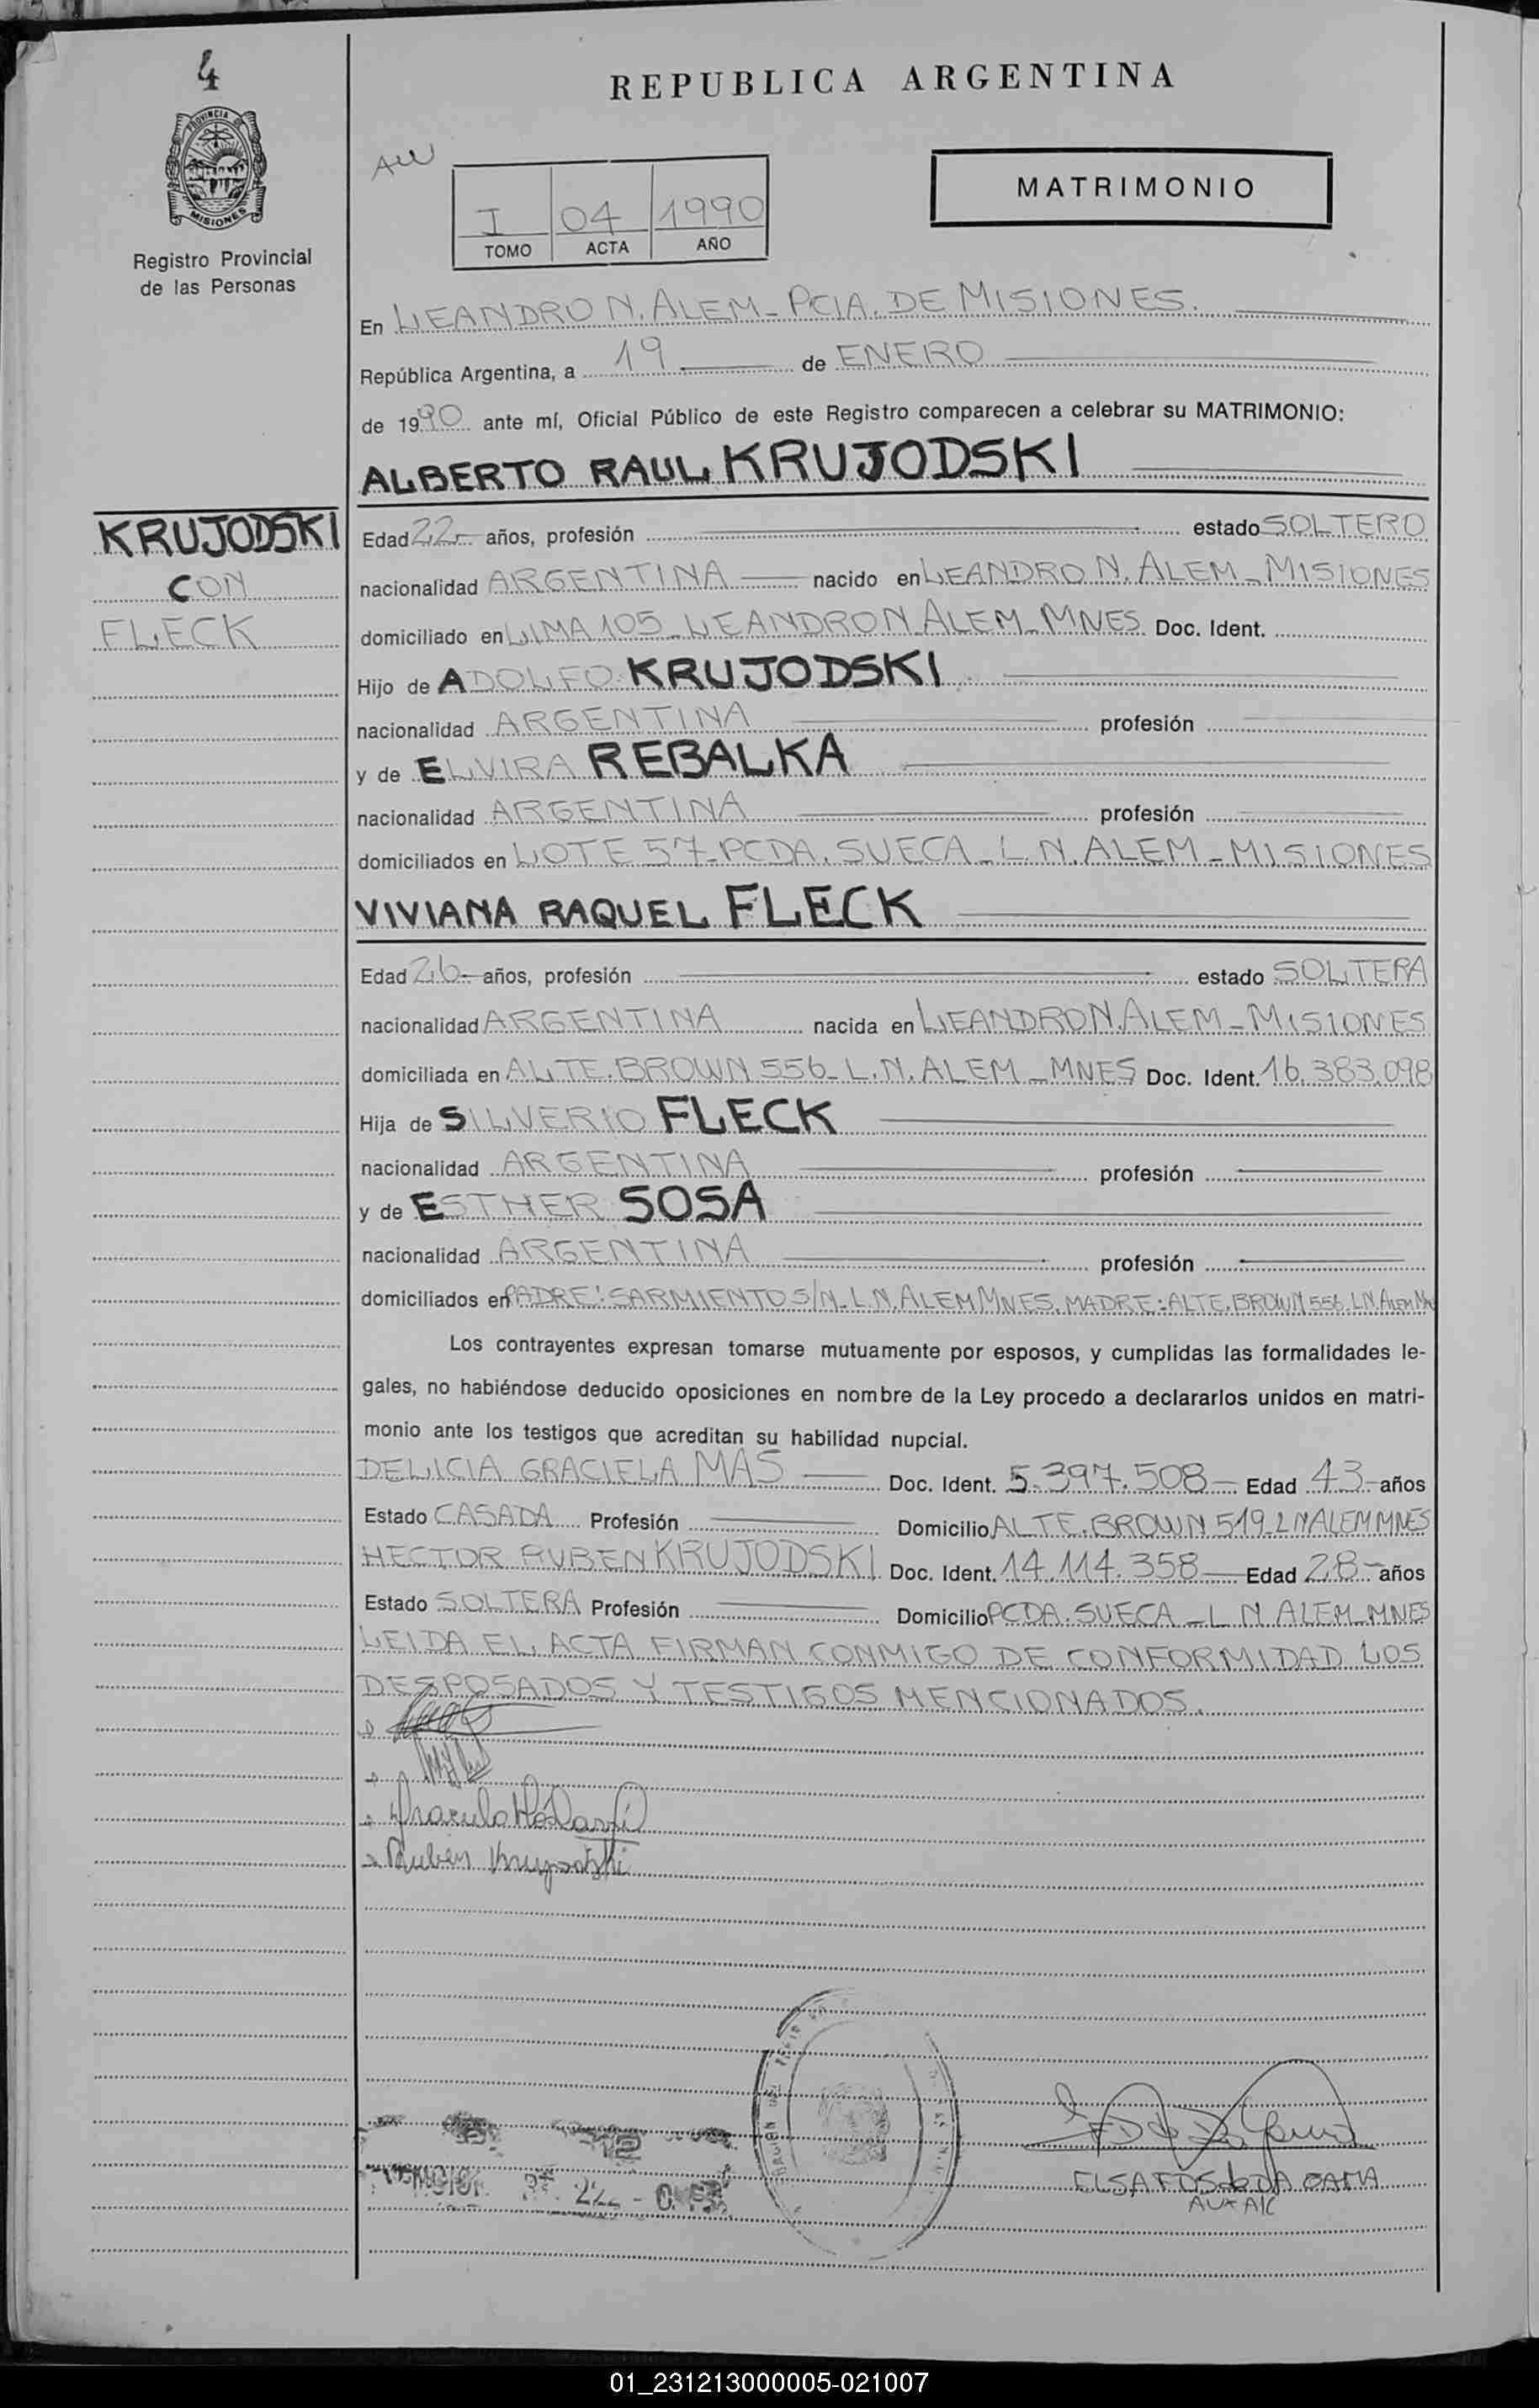 4
PROVINCIA DE
MISIONES
Registro Provincial
de las Personas
REPUBLICA ARGENTINA
MATRIMONIO
I 04 1990
TOMO ACTA AÑO
En LEANDRO N. ALEM - PCIA. DE MISIONES.
República Argentina, a 19 de ENERO
de 1990 ante mí, Oficial Público de este Registro comparecen a celebrar su MATRIMONIO:
ALBERTO RAUL KRUJODSKI
KRUJODSKI
CON
FLECK
Edad 22 años, profesión estado SOLTERO
nacionalidad ARGENTINA nacido en LEANDRO N. ALEM - MISIONES
domiciliado en LIMA 105 - LEANDRO N. ALEM - MNES Doc. Ident.
Hijo de ADOLFO KRUJODSKI
nacionalidad ARGENTINA profesión
y de ELVIRA REBALKA
nacionalidad ARGENTINA profesión
domiciliados en LOTE 57 - PCDA. SUECA - L. N. ALEM - MISIONES
VIVIANA RAQUEL FLECK
Edad 26 años, profesión estado SOLTERA
nacionalidad ARGENTINA nacida en LEANDRO N. ALEM - MISIONES
domiciliada en ALTE. BROWN 556 - L. N. ALEM - MNES Doc. Ident. 16.383.098
Hija de SILVERIO FLECK
nacionalidad ARGENTINA profesión
y de ESTHER SOSA
nacionalidad ARGENTINA profesión
domiciliados en PADRE: SARMIENTO S/N - L.N. ALEM MNES. MADRE: ALTE. BROWN 556 L N ALEM
Los contrayentes expresan tomarse mutuamente por esposos, y cumplidas las formalidades le-
gales, no habiéndose deducido oposiciones en nombre de la Ley procedo a declararlos unidos en matri-
monio ante los testigos que acreditan su habilidad nupcial.
DELICIA GRACIELA MAS Doc. Ident. 5.397.508 Edad 43 años
Estado CASADA Profesión Domicilio ALTE. BROWN 519 - L N ALEM MNES
HECTOR RUBEN KRUJODSKI Doc. Ident. 14.114.358 Edad 28 años
Estado SOLTERA Profesión Domicilio PCDA. SUECA - L N ALEM - MNES
LEIDA EL ACTA FIRMAN CONMIGO DE CONFORMIDAD LOS
DESPOSADOS Y TESTIGOS MENCIONADOS.
Ruben Krujodski
01_231213000005-021007